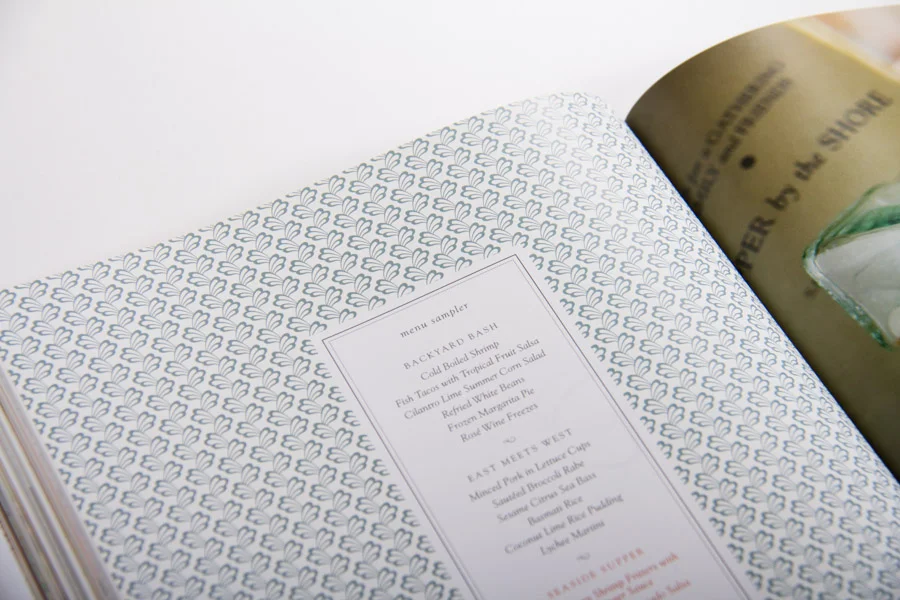 menu sampler
BACKYARD BASH
Cold Boiled Shrimp
Fish Tacos with Tropical Fruit Salsa
Cilantro Lime Summer Corn Salad
Refried White Beans
Frozen Margarita Pie
Rosé Wine Freezes
EAST MEETS WEST
Minced Pork in Lettuce Cups
Sautéed Broccoli Rabe
Sesame Citrus Sea Bass
Basmati Rice
Coconut Lime Rice Pudding
Lychee Martini
SEASIDE SUPPER
Shrimp Fritters with
Sauce
Salsa
a GATHERING
and FRIENDS
by the SHORE